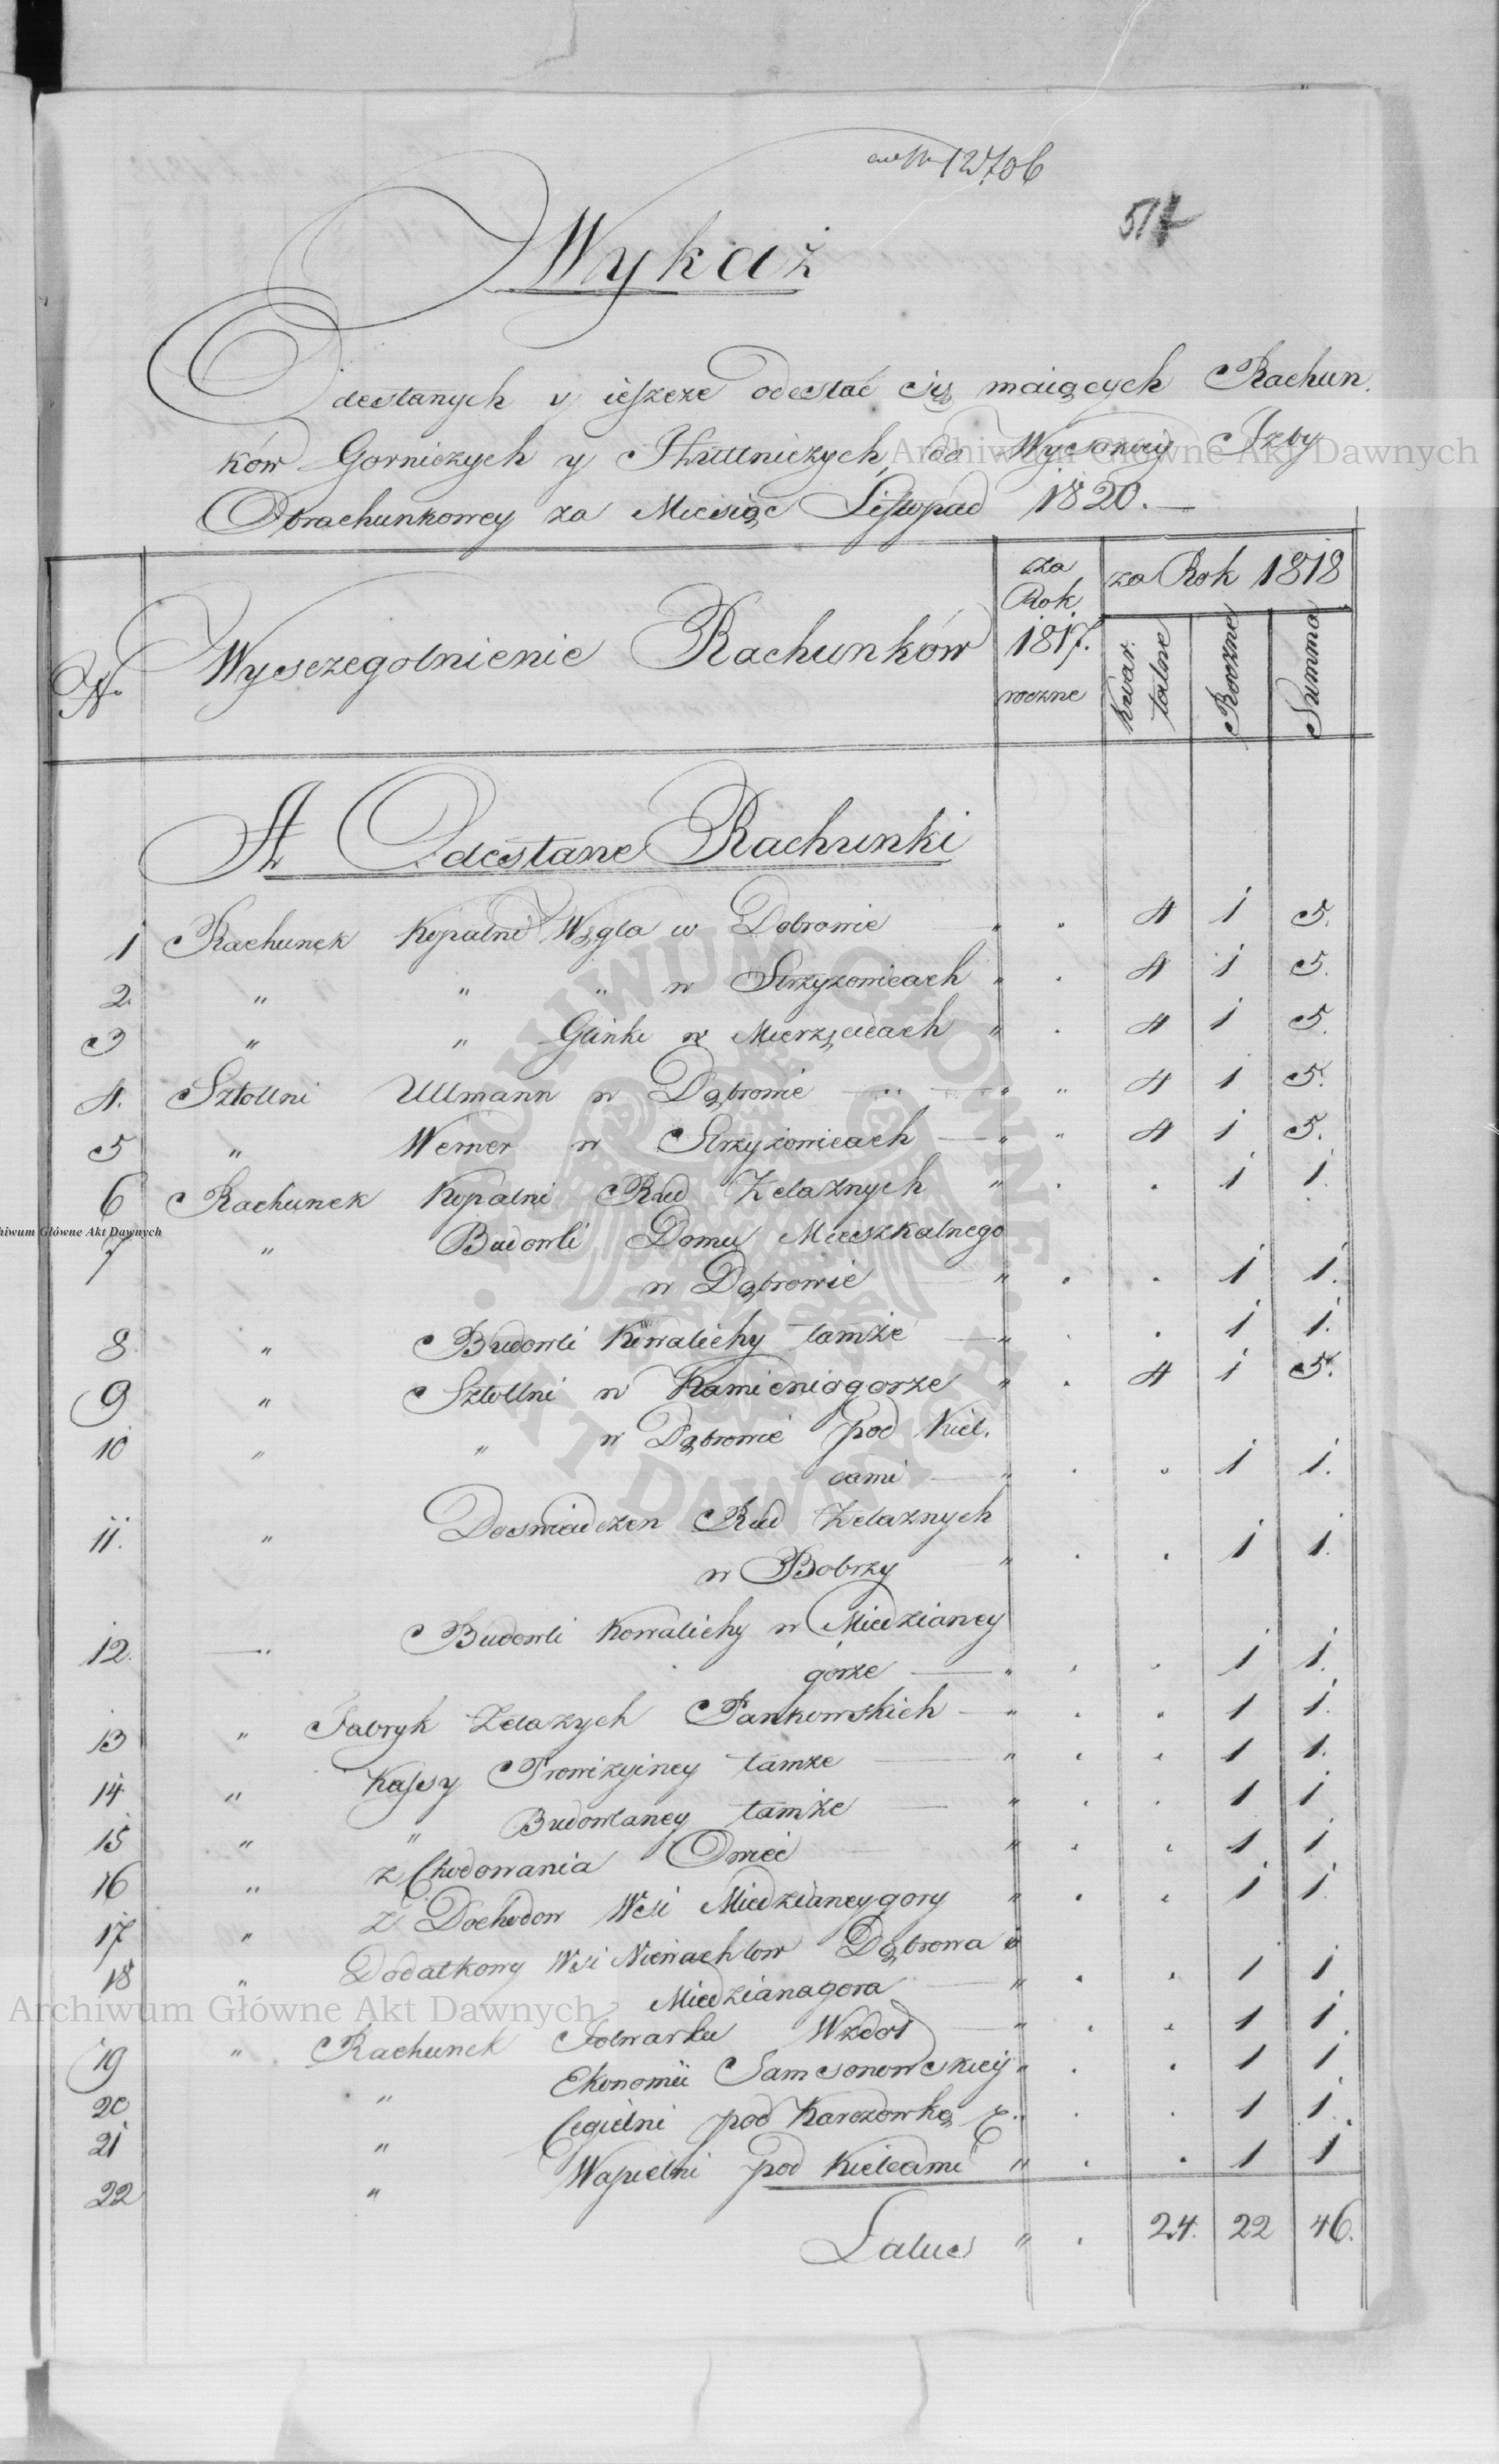 12706
517
Wykaz
Odesłanych y ieszcze odesłać się maiących Rachun.
ków Gorniczych y Huttniczych, do Wyższey Izby
Obrachunkowey za Miesiąc Listopad 1820. —
No Wyszczegolnienie Rachunków za Rok 1817. roczne za Rok 1818 Kwar. talne Roczne Summa
A Odesłane Rachunki
1 Rachunek Kopalni Węgla w Dobrowie " . 4 1 5.
2. " " " w Strzyzowicach " . 4 1 5.
3 " " Glinki w Mierzęcicach " . 4 1 5.
4. Sztollni Ullmann w Dąbrowie " " 4 1 5.
5 " Werner w Strzyżowicach — " " 4 1 5.
6 Rachunek Kopalni Rud Zelaznych " . . 1 1.
7 " Budowli Domu Mieszkalnego
w Dąbrowie — " . . 1 1.
8 " Budowli Kowalichy tamże — " . . 1 1.
9 " Sztollni w Kamieniogorze " . 4 1 5.
10 " " w Dąbrowie pod Kiel.
cami — " . . 1 1.
11. " Doswiadczen Rud Zelaznych
w Bobrzy — " . . 1 1.
12. — Budowli Kowalichy w Miedzianey
górze — " . . 1 1.
13 " Fabryk Zelazych Pankowskich — " . . 1 1.
14 " Kassy Prowizyiney tamze — " . . 1 1.
15 " " Budowlaney tamże — " . . 1 1
16 " z Chodowania Owiec — " . . 1 1
17 " z Dochodow Wsi Miedzianeygory " . . 1 1.
18 " Dodatkowy Wsi Niewachlow Dąbrowa i
Miedzianagora — " . . 1 1
19 " Rachunek Folwarku Wzdoł — " . . 1 1.
20 " Ekonomii Samsonowskiey " . . 1 1
21 " Cegielni pod Karczowką . . 1 1.
22 " Wapielni pod Kielcami " . . 1 1
Latus " . 24. 22 46.
Archiwum Główne Akt Dawnych
Archiwum Główne Akt Dawnych
hiwum Główne Akt Dawnych
ARCHIWUM GŁÓWNE · AKT DAWNYCH ·